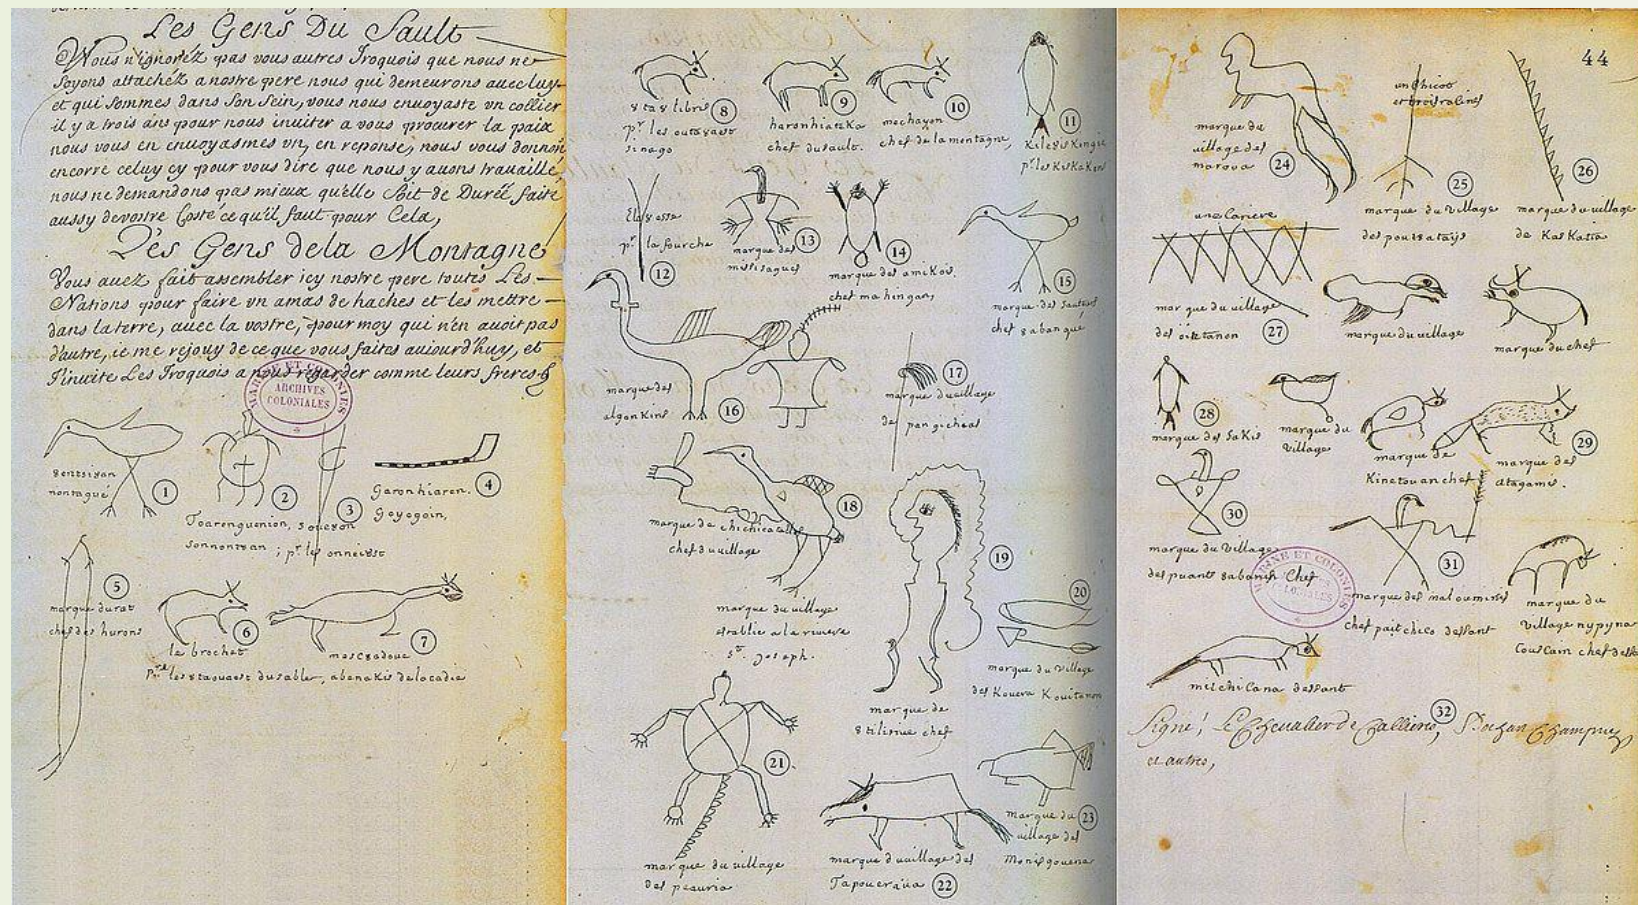 Les Gens Du Sault
Vous n'ignoréz pas vous autres Iroquois que nous ne
soyons attachéz a nostre pere nous qui demeurons avec luy
et qui sommes dans son sein, vous nous envoyaste vn collier
il y a trois ans pour nous inuiter a vous procurer la paix
nous vous en enuoyasmes vn, en reponse, nous vous donnon
encorre celuy cy pour vous dire que nous y auons trauaillé,
nous ne demandons pas mieux qu'elle soit de Durée faite
aussy de vostre Costé ce qu'il faut pour Cela,
Les Gens de la Montagne
Vous auez fait assembler icy nostre pere toutes Les
Nations pour faire vn amas de haches et les mettre
dans la terre, auec la vostre, pour moy qui n'en auoit pas
d'autre, ie me rejouy de ce que vous faites aujourd'huy, et
J'inuite Les Iroquois a nous regarder comme leurs freres
MARINE ET COLONIES
ARCHIVES
COLONIALES
8entsi8an
nontagué
1
2
Toarenguenion,
sonnont8an ;
3
pr les onnei8st
garonhiaron.
Goyogoin,
4
5
marque du rat
chef des hurons
6
le brochet
pr les 8ta8aast du sable,
7
mescadoue
abenakis de lacadie
8
pr les outa8ast
sinago
9
haronhiateka
chef du sault.
10
mechayon
chef de la montagne,
11
Kiles8iskingie
pr les KisKaKons
12
Elo8aose
pr la fourche
13
marque des
missisagues
14
marque des amikois.
chef mahingan,
15
marque des sauteurs
chef 8abangué
16
marque des
algonkins
17
marque du village
des pangicheas
18
marque de chichicatalo
chef du village
marque du village
establie a la riuiere
st. joseph.
19
marque de
8tilirine chef
20
marque du village
des Kouera Kouitanon
21
marque du village
des peauria
22
marque du village des
Tapouera8a
23
marque du
village des
Monisgouena
44
24
marque du
village des
maroua
un chicot
et trois racines
25
marque du village
des pou8atamis
26
marque du village
de KasKatia
une Lariere
marque du village
des oüiatanon
27
marque du village
marque du chef
28
marque des sakis
marque du
village
marque de
Kinetouan chef
29
marque des
atagamis.
30
marque du village
des puants 8abanan chef
MARINE ET COLONIES
COLONIALES
31
marque des maloumines
chef paitchico dessant
marque du
village
CousCain chef
melchilana dessant
32
Signé, Le Chevalier de Callieres, Bochart Champigny
et autres,